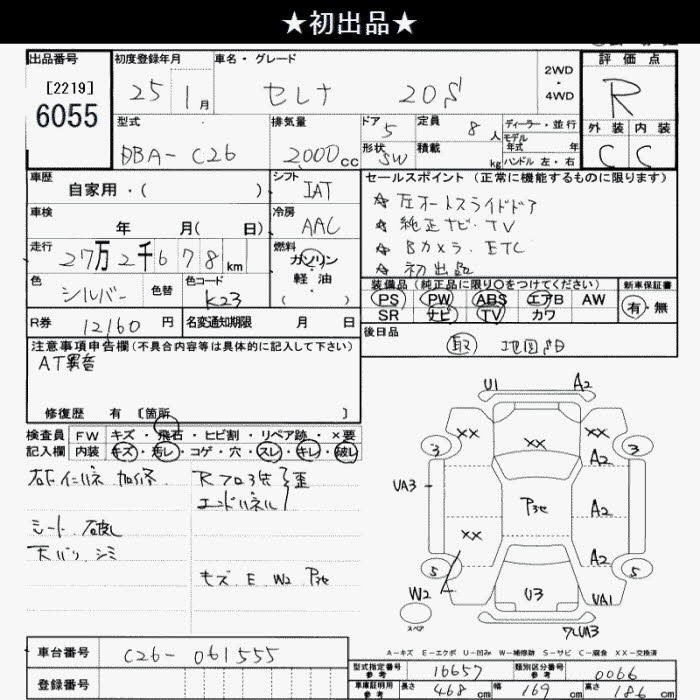 ★初出品★
出品番号
[2219]
6055
初度登録年月
25 1月
車名・グレード
セレナ 20S
2WD
・
4WD
評価点
R
外装 内装
C C
型式
DBA-C26
排気量
2000cc
ドア
5
形状
SW
定員
8人
積載
kg
ディーラー・並行
モデル
年式 年
ハンドル 左・右
車歴
自家用・( )
シフト
IAT
車検
年 月( 日)
冷房
AAC
走行
27万2千678km
燃料
ガソリン
・
軽油
色
シルバー
色替
色コード
K23
R券
12160円
名変通知期限 月 日
セールスポイント(正常に機能するものに限ります)
☆ 左オートスライドドア
☆ 純正ナビ・TV
☆ Bカメラ. ETC
☆ 初出品
装備品(純正品に限り○をつけてください)
PS PW ABS エアB AW
SR ナビ TV カワ
新車保証書
有・無
後日品
取 地図SD
注意事項申告欄(不具合内容等は具体的に記入して下さい)
AT異音
修復歴 有 [箇所 ]
検査員
記入欄
FW キズ・飛石・ヒビ割・リペア跡・×要
内装 キズ・汚レ・コゲ・穴・スレ・キレ・破レ
右F インパネ 加修
シート 破れ
天バリ シミ
Rフロア
エンドパネル
歪
キズ E W2 P
U1 A2
3 XX XX 3
A2
UA3
P A2
XX
A2
5 5
W2 U3 UA1
スペア
フクUA3
A-キズ E-エクボ U-凹み W-補修跡 S-サビ C-腐食 XX-交換済
車台番号
C26-061555
登録番号
型式指定番号
参考
16657
類別区分番号
参考
0066
車庫証明用
参考
長さ 468cm
幅 169cm
高さ 186cm